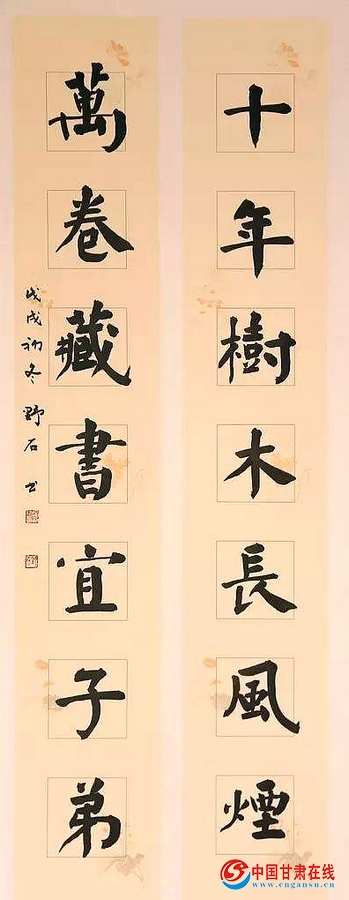 十年樹木長風煙
萬卷藏書宜子弟
戊戌初冬 野石 书
中国甘肃在线
www.cngansu.cn